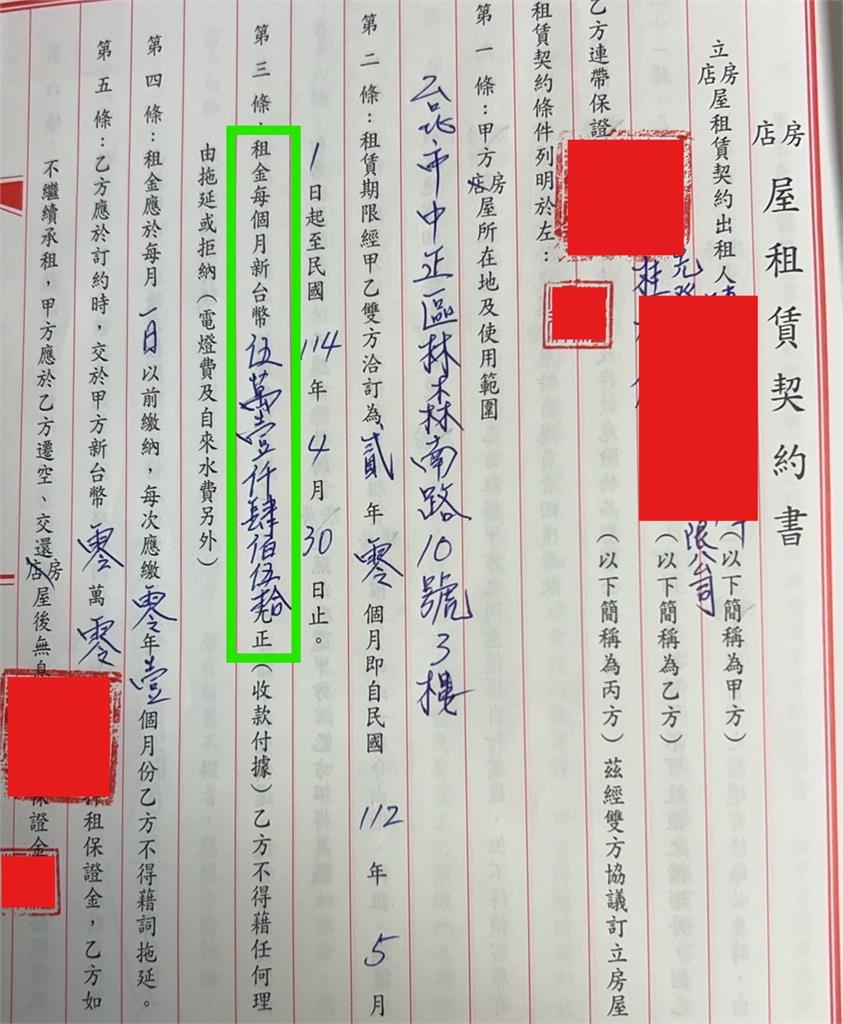 店房屋租賃契約書
立店房屋租賃契約出租人（以下簡稱為甲方）
限公司（以下簡稱為乙方）
乙方連帶保證（以下簡稱為丙方）茲經雙方協議訂立房屋
租賃契約條件列明於左：
第一條：甲方店房屋所在地及使用範圍
台北市中正區林森南路10號3樓
第二條：租賃期限經甲乙雙方洽訂為貳年零個月即自民國112年5月
1日起至民國114年4月30日止。
第三條：租金每個月新台幣伍萬壹仟肆佰伍拾元正（收款付據）乙方不得藉任何理
由拖延或拒納（電燈費及自來水費另外）
第四條：租金應於每月一日以前繳納，每次應繳零年壹個月份乙方不得藉詞拖延。
第五條：乙方應於訂約時，交於甲方新台幣零萬零租保證金，乙方如
不繼續承租，甲方應於乙方遷空、交還店房屋後無息保證金